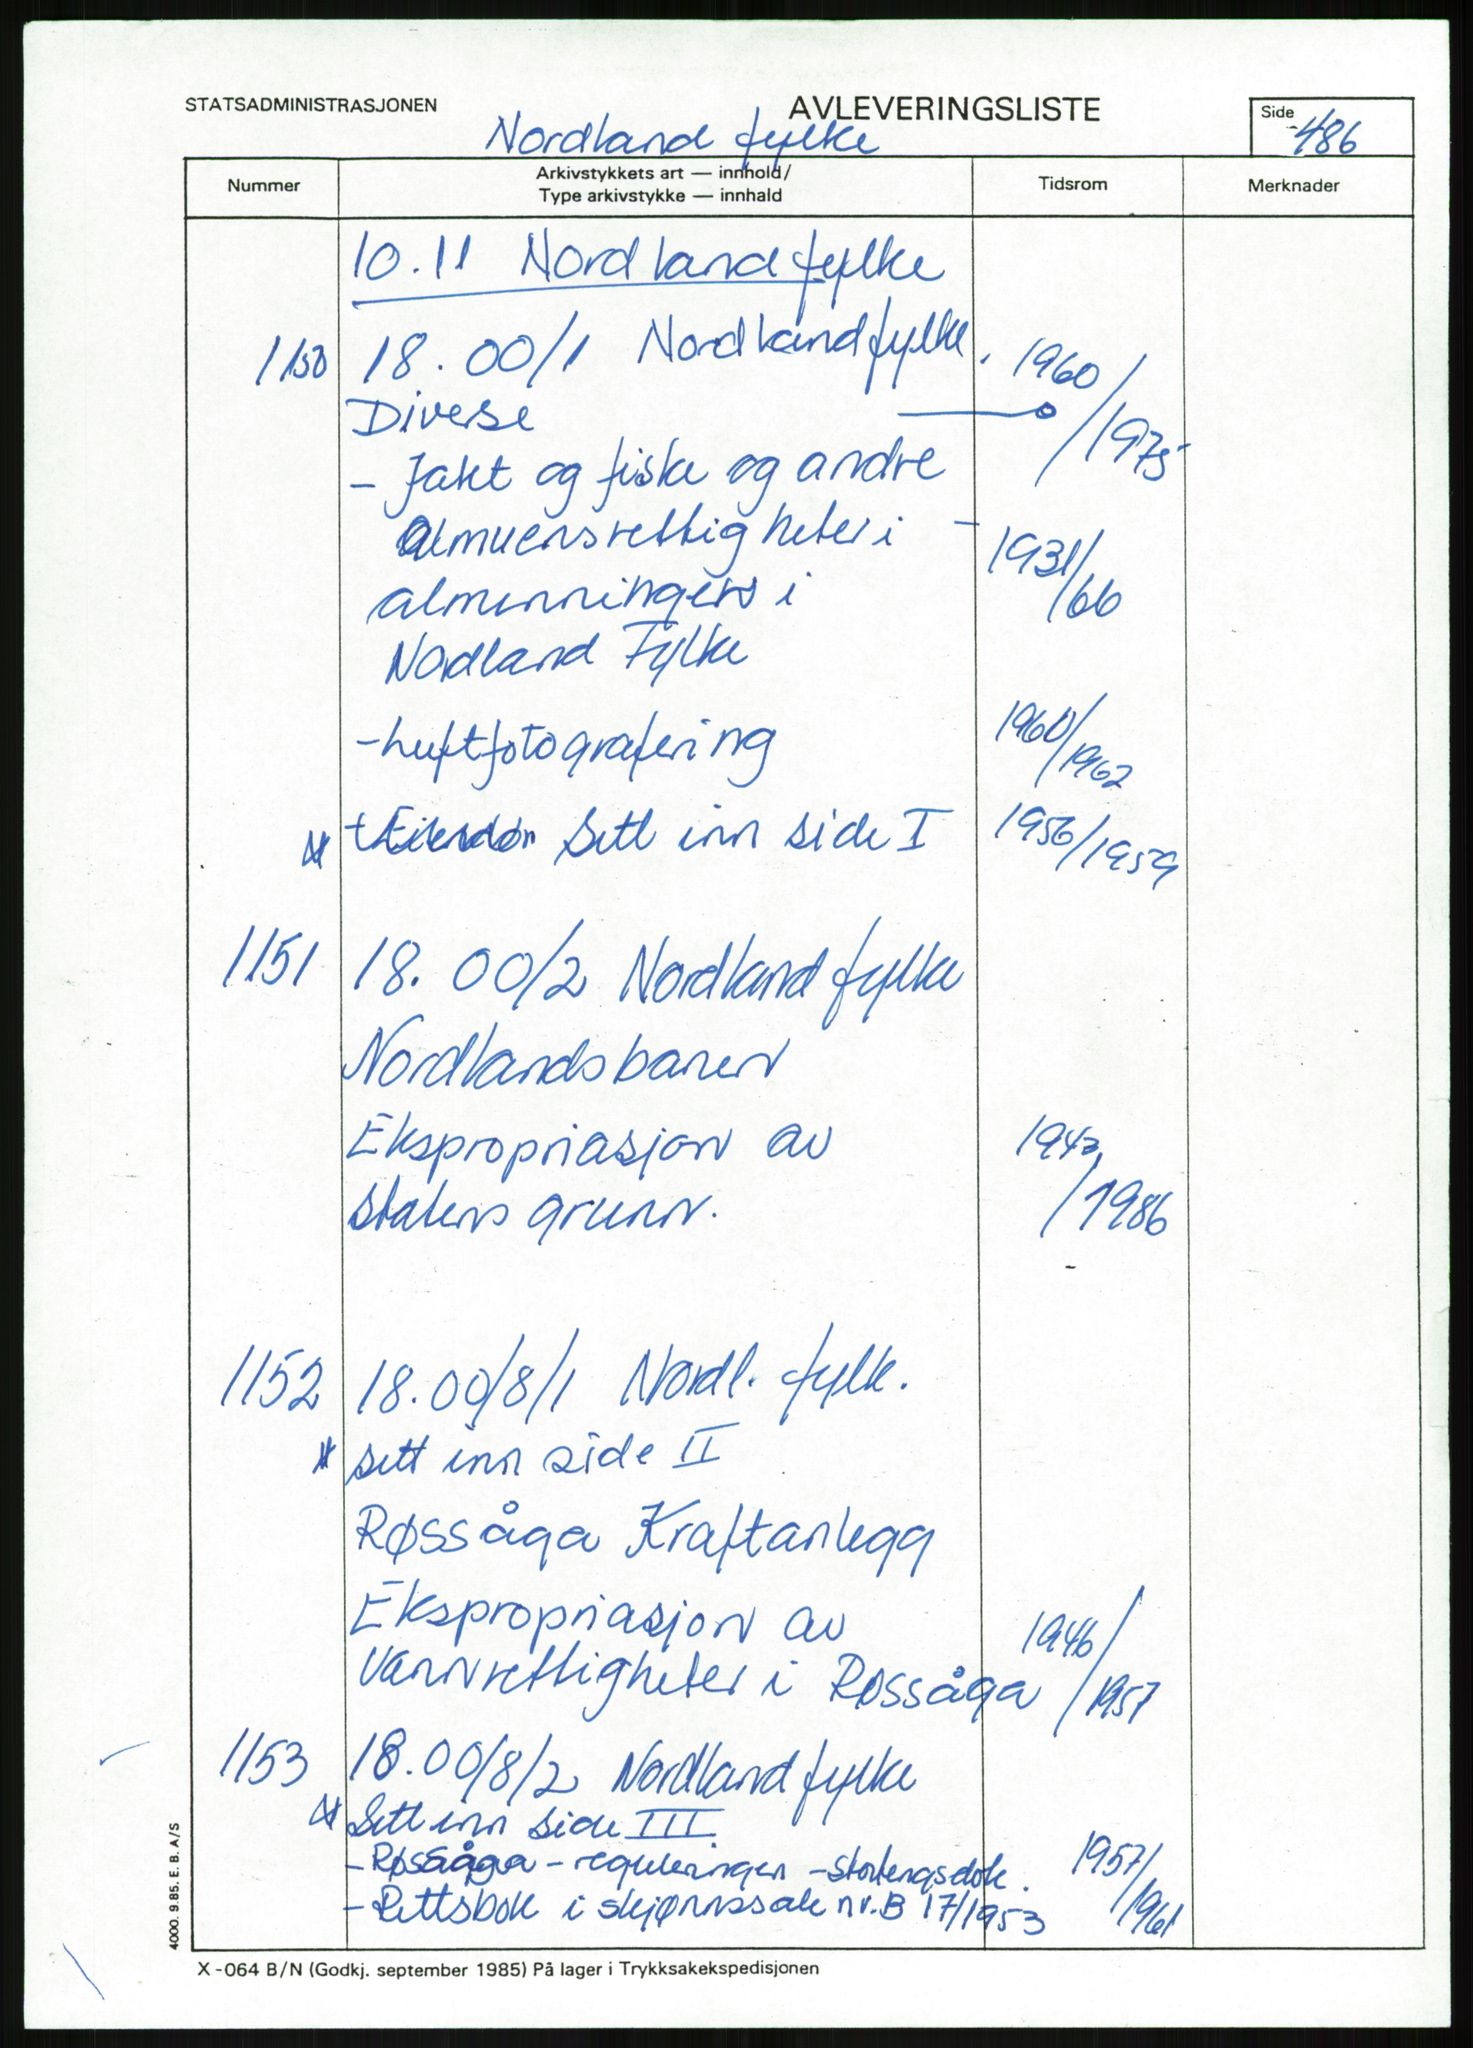 STATSADMINISTRASJONEN
AVLEVERINGSLISTE
Side
486
Nordland fylke
Nummer
Arkivstykkets art — innhold/
Type arkivstykke — innhald
Tidsrom
Merknader
10.11 Nordland fylke
1150 18.00/1 Nordland fylke. 1960
Diverse /1975
- Jakt og fiske og andre
almuensrettigheter i - 1931/
almenningers i /66
Nordland Fylke
- Luftfotografering 1960/1962
Sett inn side I 1956/1959
1151 18.00/2 Nordland fylke
Nordlandsbanen
Ekspropriasjon av 1942
Statens grunn. /1986
1152 18.00/8/1 Nordl. fylk.
* Sett inn side II
Røssåga Kraftanlegg
Ekspropriasjon av 1946/
Vannrettigheter i Røssåga /1957
1153 18.00/8/2 Nordland fylke
* Sett inn side III
- Røssåga - reguleringen - stortingsdok. 1957/
- Rettsbok i skjønnssak nr. B 17/1953 /1961
4000. 9.85. E. B. A/S
X-064 B/N (Godkj. september 1985) På lager i Trykksakekspedisjonen